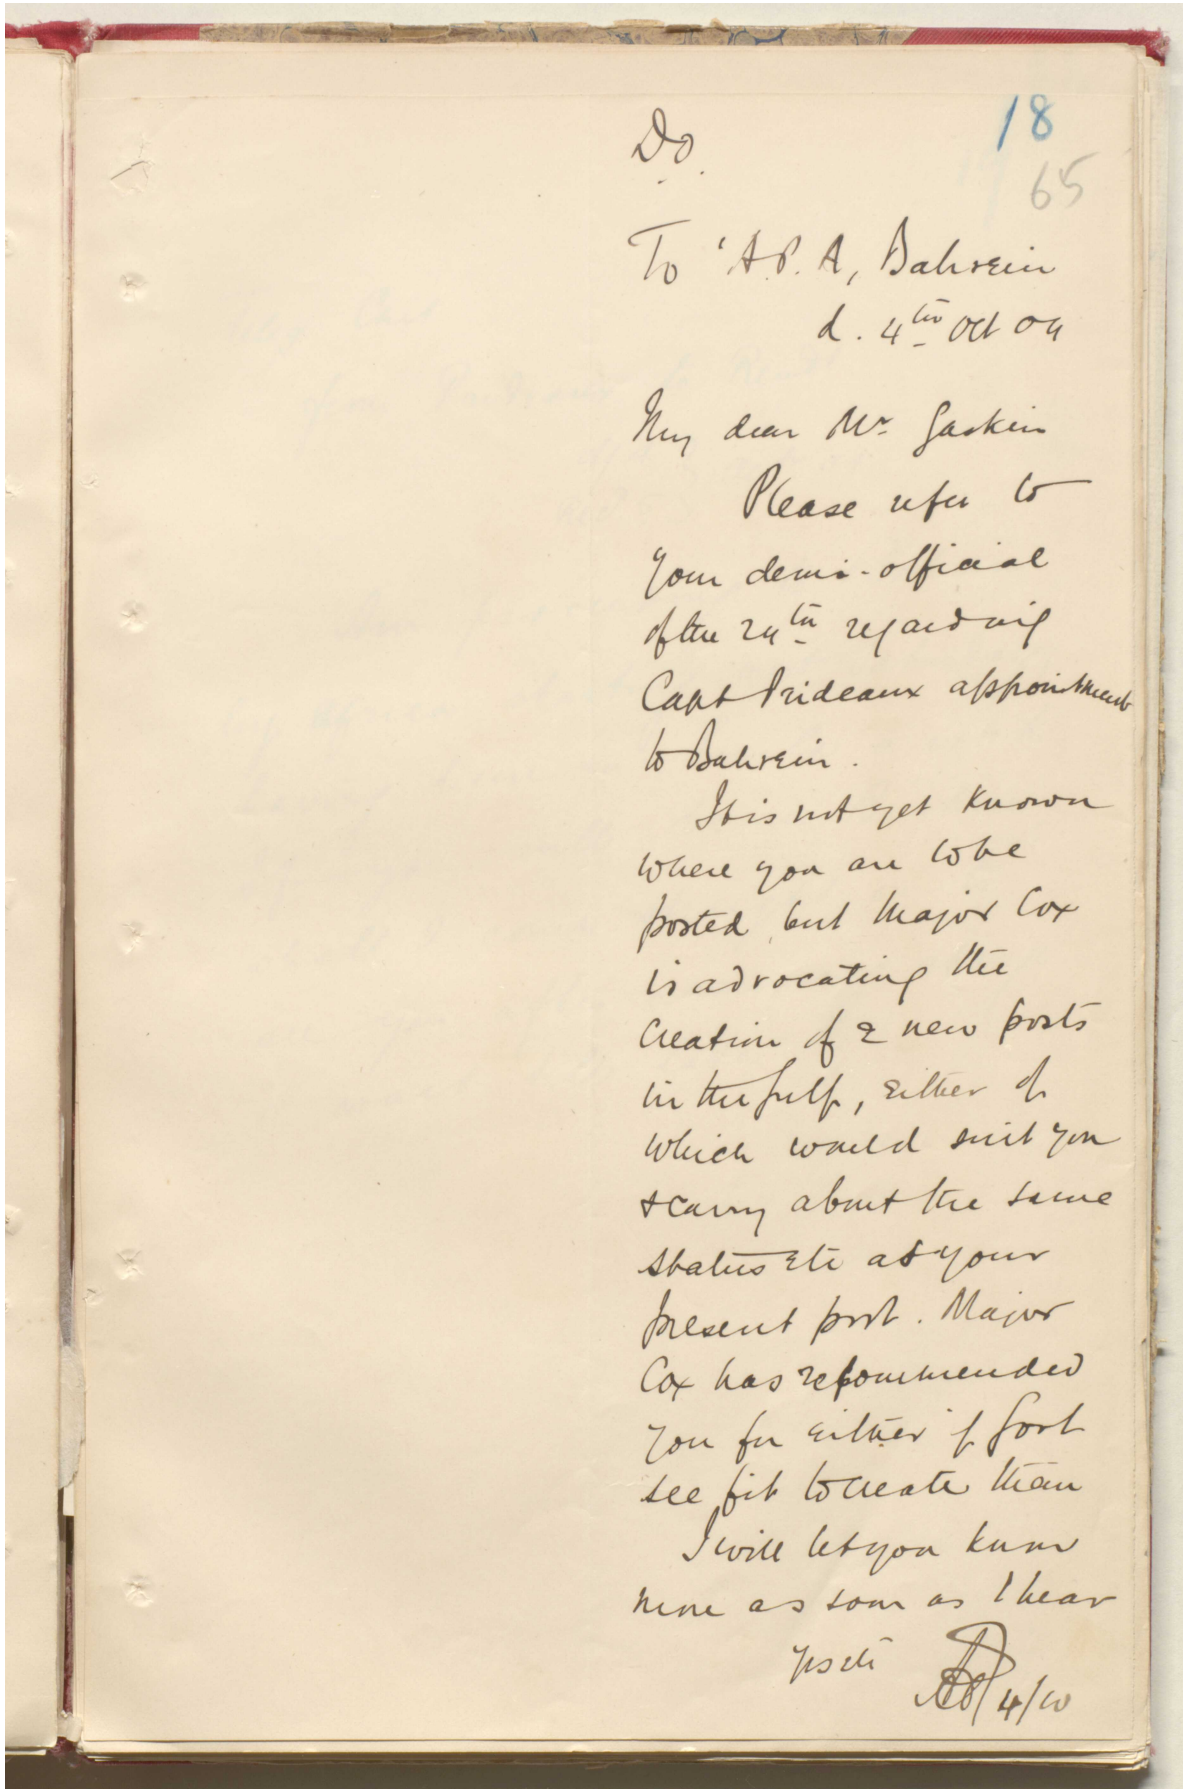 18
65
D.O.
To A.P.A, Bahrein
d. 4th Oct 04
My dear Mr Gaskin
Please refer to
your demi-official
of the 24th regarding
Capt Prideaux appointment
to Bahrein.
It is not yet known
where you are to be
posted, but Major Cox
is advocating the
creation of 2 new posts
in the Gulf, either of
which would suit you
& carry about the same
status etc as your
present post. Major
Cox has recommended
you for either if Govt
see fit to create them
I will let you know
more as soon as I hear
Yrs etc
4/10